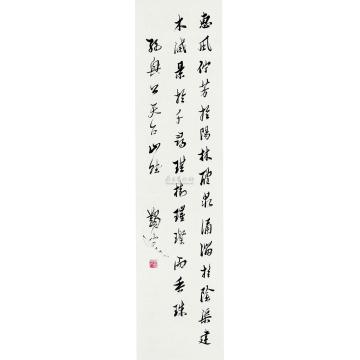 惠風佇芳於陽林醴泉涌溜於陰渠建
木滅景於千尋琪樹璀璨而垂珠
孫興公天台山賦